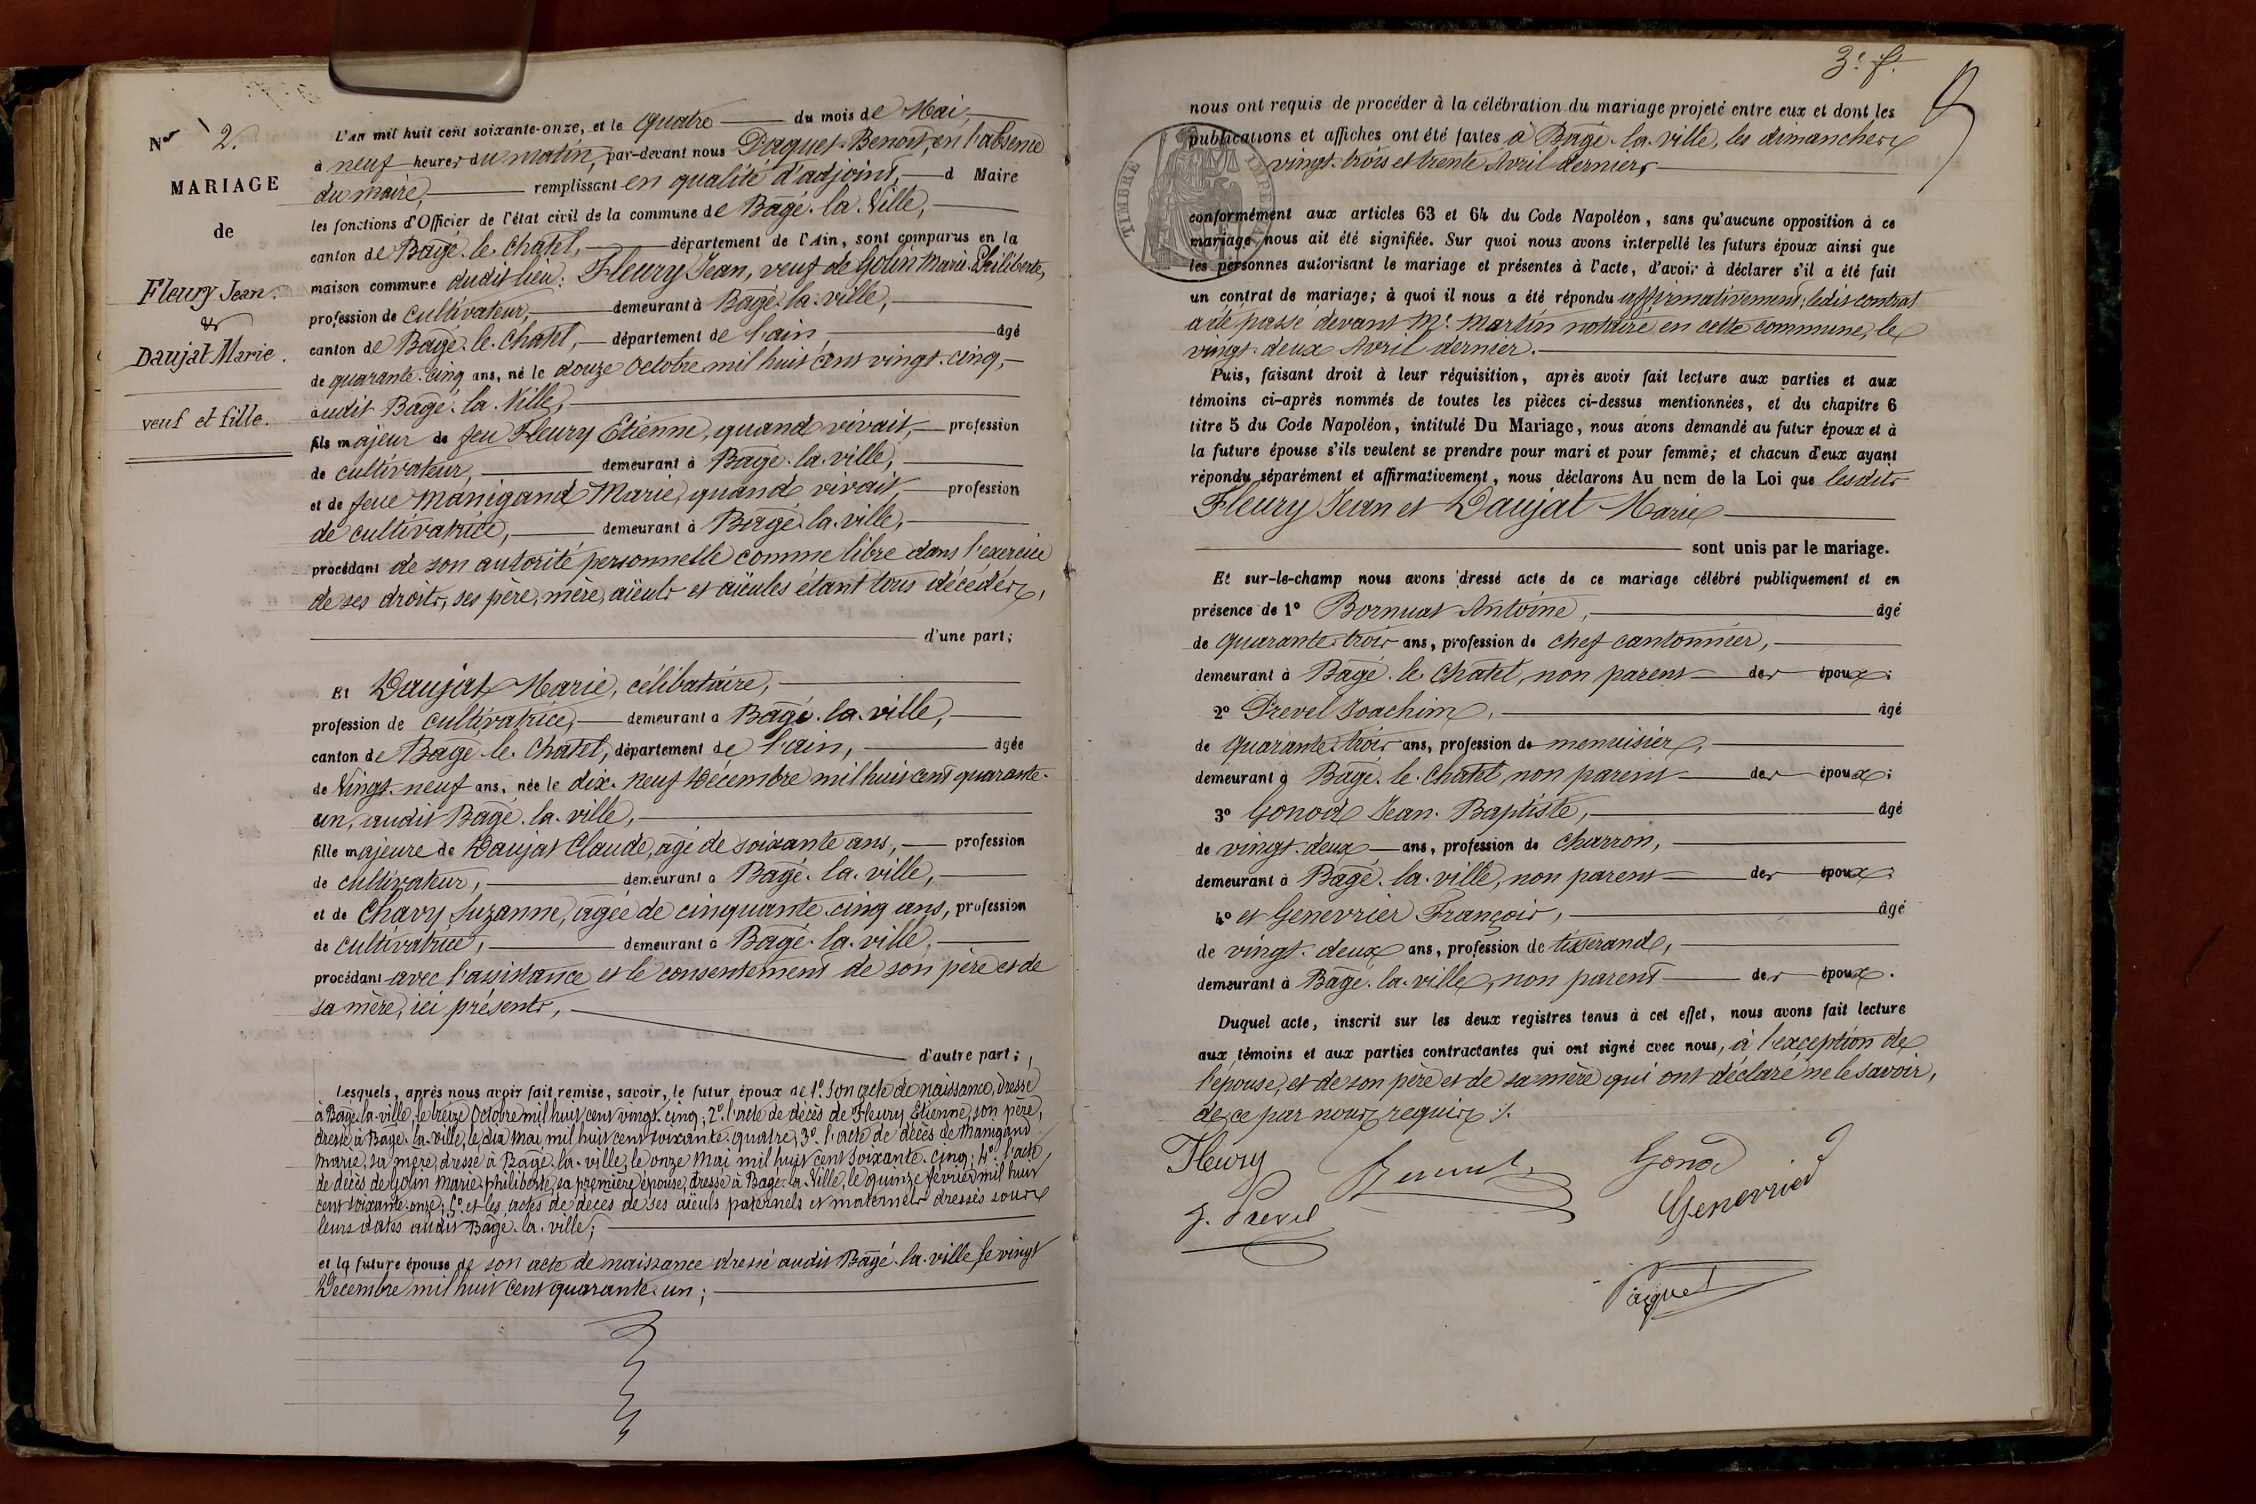 N° 2.
MARIAGE
de
Fleury Jean.
&
Daujat Marie.
veuf et fille.
L'an mil huit cent soixante-onze, et le quatre du mois de Mai,
à neuf heures du matin, par-devant nous Paquet Benoit, en l'absence
du maire, remplissant en qualité d'adjoint, d Maire
les fonctions d'Officier de l'état civil de la commune de Bagé-la-Ville,
canton de Bagé-le-Chatel, département de l'Ain, sont comparus en la
maison commune dudit lieu: Fleury Jean, veuf de Golin Marie-Philiberte,
profession de cultivateur, demeurant à Bagé-la-ville,
canton de Bagé-le-Chatel, département de l'ain, âgé
de quarante-cinq ans, né le douze Octobre mil huit cent vingt-cinq,
audit Bagé-la-Ville,
fils majeur de feu Fleury Etienne, quand vivait, profession
de cultivateur, demeurant à Bagé-la-ville,
et de feue Manigand Marie, quand vivait, profession
de cultivatrice, demeurant à Bagé-la-ville,
procédant de son autorité personnelle comme libre dans l'exercice
de ses droits, ses père, mère, aïeuls et aïeules étant tous décédés,
d'une part;
Et Daujat Marie, célibataire,
profession de cultivatrice, demeurant à Bagé-la-ville,
canton de Bagé-le-Chatel, département de l'ain, âgée
de Vingt-neuf ans, née le dix-neuf Décembre mil huit cent quarante-
un, audit Bagé-la-ville,
fille majeure de Daujat Claude, âgé de soixante ans, profession
de cultivateur, demeurant à Bagé-la-ville,
et de Chavy Suzanne, âgée de cinquante-cinq ans, profession
de cultivatrice, demeurant à Bagé-la-ville,
procédant avec l'assistance et le consentement de son père et de
sa mère, ici présents,
d'autre part;
Lesquels, après nous avoir fait remise, savoir, le futur époux de 1° Son acte de naissance, dressé
à Bagé-la-ville, le treize Octobre mil huit cent vingt-cinq; 2° l'acte de décès de Fleury Etienne, son père,
dressé à Bagé-la-ville, le dix Mai mil huit cent soixante-quatre; 3° l'acte de décès de Manigand
Marie, sa mère, dressé à Bagé-la-ville, le onze Mai mil huit cent soixante-cinq; 4° l'acte
de décès de Golin Marie-philiberte, sa première épouse, dressé à Bagé-la-Ville, le quinze février mil huit
cent soixante-onze; 5° et les actes de décès de ses aïeuls paternels et maternels dressés sous
leurs dates audit Bagé-la-ville;
et la future épouse de son acte de naissance dressé audit Bagé-la-ville, le vingt
Décembre mil huit cent quarante-un;
3e f.
nous ont requis de procéder à la célébration du mariage projeté entre eux et dont les
publications et affiches ont été faites à Bagé-la-ville, les dimanches
vingt-trois et trente Avril derniers
TIMBRE
conformément aux articles 63 et 64 du Code Napoléon, sans qu'aucune opposition à ce
mariage nous ait été signifiée. Sur quoi nous avons interpellé les futurs époux ainsi que
les personnes autorisant le mariage et présentes à l'acte, d'avoir à déclarer s'il a été fait
un contrat de mariage; à quoi il nous a été répondu affirmativement; ledit contrat
a été passé devant Me. Martin notaire en cette commune, le
vingt-deux Avril dernier.
Puis, faisant droit à leur réquisition, après avoir fait lecture aux parties et aux
témoins ci-après nommés de toutes les pièces ci-dessus mentionnées, et du chapitre 6
titre 5 du Code Napoléon, intitulé Du Mariage, nous avons demandé au futur époux et à
la future épouse s'ils veulent se prendre pour mari et pour femme; et chacun d'eux ayant
répondu séparément et affirmativement, nous déclarons Au nom de la Loi que lesdits
Fleury Jean et Daujat Marie
sont unis par le mariage.
Et sur-le-champ nous avons dressé acte de ce mariage célébré publiquement et en
présence de 1° Bornuat Antoine, âgé
de quarante-trois ans, profession de chef cantonnier,
demeurant à Bagé-le-Chatel, non parent des époux;
2° Prevel Joachim, âgé
de quarante-trois ans, profession de menuisier,
demeurant à Bagé-le-Chatel, non parent des époux;
3° Gonod Jean-Baptiste, âgé
de vingt-deux ans, profession de charron,
demeurant à Bagé-la-ville, non parent des époux;
4° et Genevrier François, âgé
de vingt-deux ans, profession de tisserand,
demeurant à Bagé-la-ville, non parent des époux.
Duquel acte, inscrit sur les deux registres tenus à cet effet, nous avons fait lecture
aux témoins et aux parties contractantes qui ont signé avec nous, à l'exception de
l'épouse, et de son père et de sa mère qui ont déclaré ne le savoir,
de ce par nous requis ./.
Fleury
Gonod
J. Prevel
Genevrier
Paquet